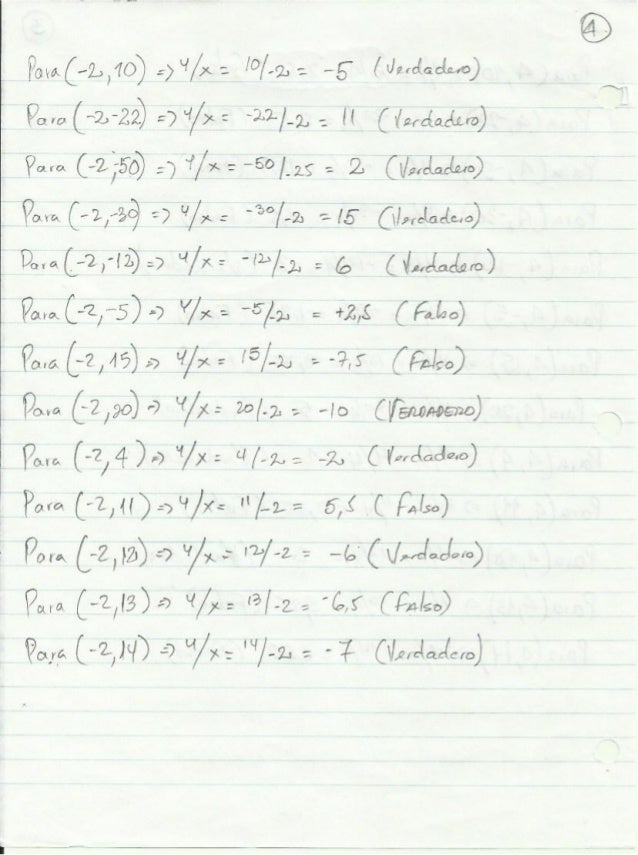 4
Para (-2, 10) => y/x = 10/-2 = -5 (Verdadero)
Para (-2-22) => y/x = -22/-2 = 11 (Verdadero)
Para (-2,-50) => y/x = -50/-25 = 2 (Verdadero)
Para (-2,-30) => y/x = -30/-2 = 15 (Verdadero)
Para (-2,-12) => y/x = -12/-2 = 6 (Verdadero)
Para (-2,-5) => y/x = -5/-2 = +2,5 (Falso)
Para (-2, 15) => y/x = 15/-2 = -7,5 (FAlso)
Para (-2,20) => y/x = 20/-2 = -10 (VERDADERO)
Para (-2, 4) => y/x = 4/-2 = -2 (Verdadero)
Para (-2,11) => y/x = 11/-2 = 5,5 (FAlso)
Para (-2,12) => y/x = 12/-2 = -6 (Verdadero)
Para (-2,13) => y/x = 13/-2 = -6,5 (FAlso)
Para (-2,14) => y/x = 14/-2 = -7 (Verdadero)